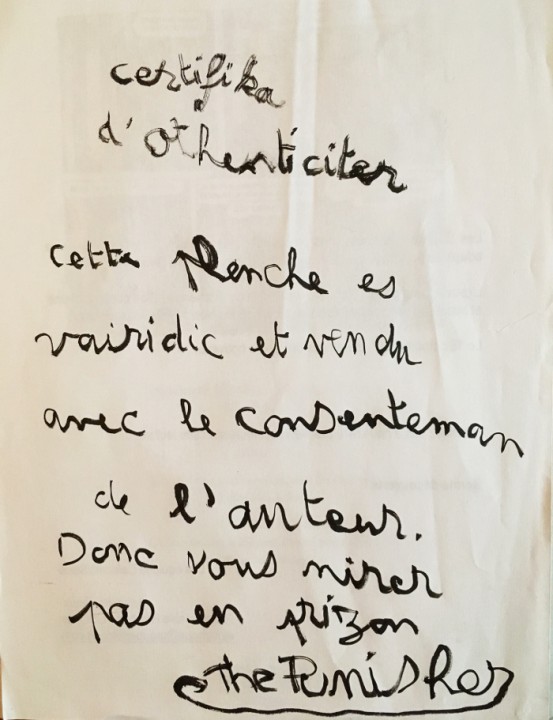 certifika
d'othentíciter
cette plenche es
vairidic et vendu
avec le consenteman
de l'auteur.
Donc vous nirer
pas en prizon
the Punisher